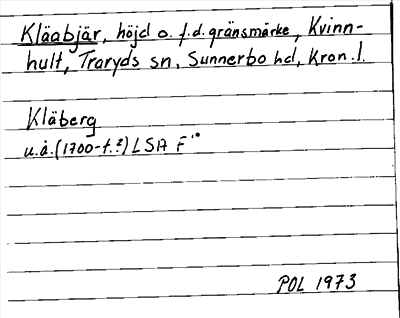 Kläabjär, höjd o. f.d. gränsmärke, Kvinn-
hult, Traryds sn, Sunnerbo hd, Kron. l.
Kläberg
u.å. (1700-t.?) LSA F 10
POL 1973